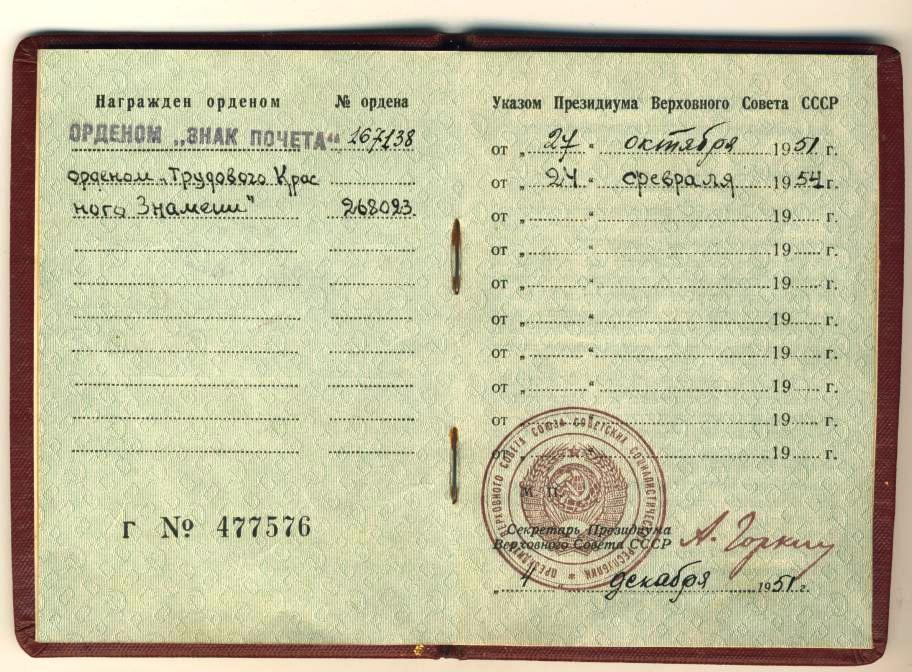 Награжден орденом № ордена
ОРДЕНОМ „ЗНАК ПОЧЕТА“ 167138
орденом „Трудового Крас
ного Знамени" 268023
Г № 477576
Указом Президиума Верховного Совета СССР
от „ 27 “ октября 1951 г.
от „ 24 “ февраля 1954 г.
от „ “ 19 г.
от „ “ 19 г.
от „ “ 19 г.
от „ “ 19 г.
от „ “ 19 г.
от „ “ 19 г.
от „ “ 19 г.
от „ “ 19 г.
М. П.
ПРЕЗИДИУМ ВЕРХОВНОГО СОВЕТА СОЮЗА СОВЕТСКИХ СОЦИАЛИСТИЧЕСКИХ РЕСПУБЛИК
Секретарь Президиума
Верховного Совета СССР А. Горкин
„ 4 “ декабря 1951 г.